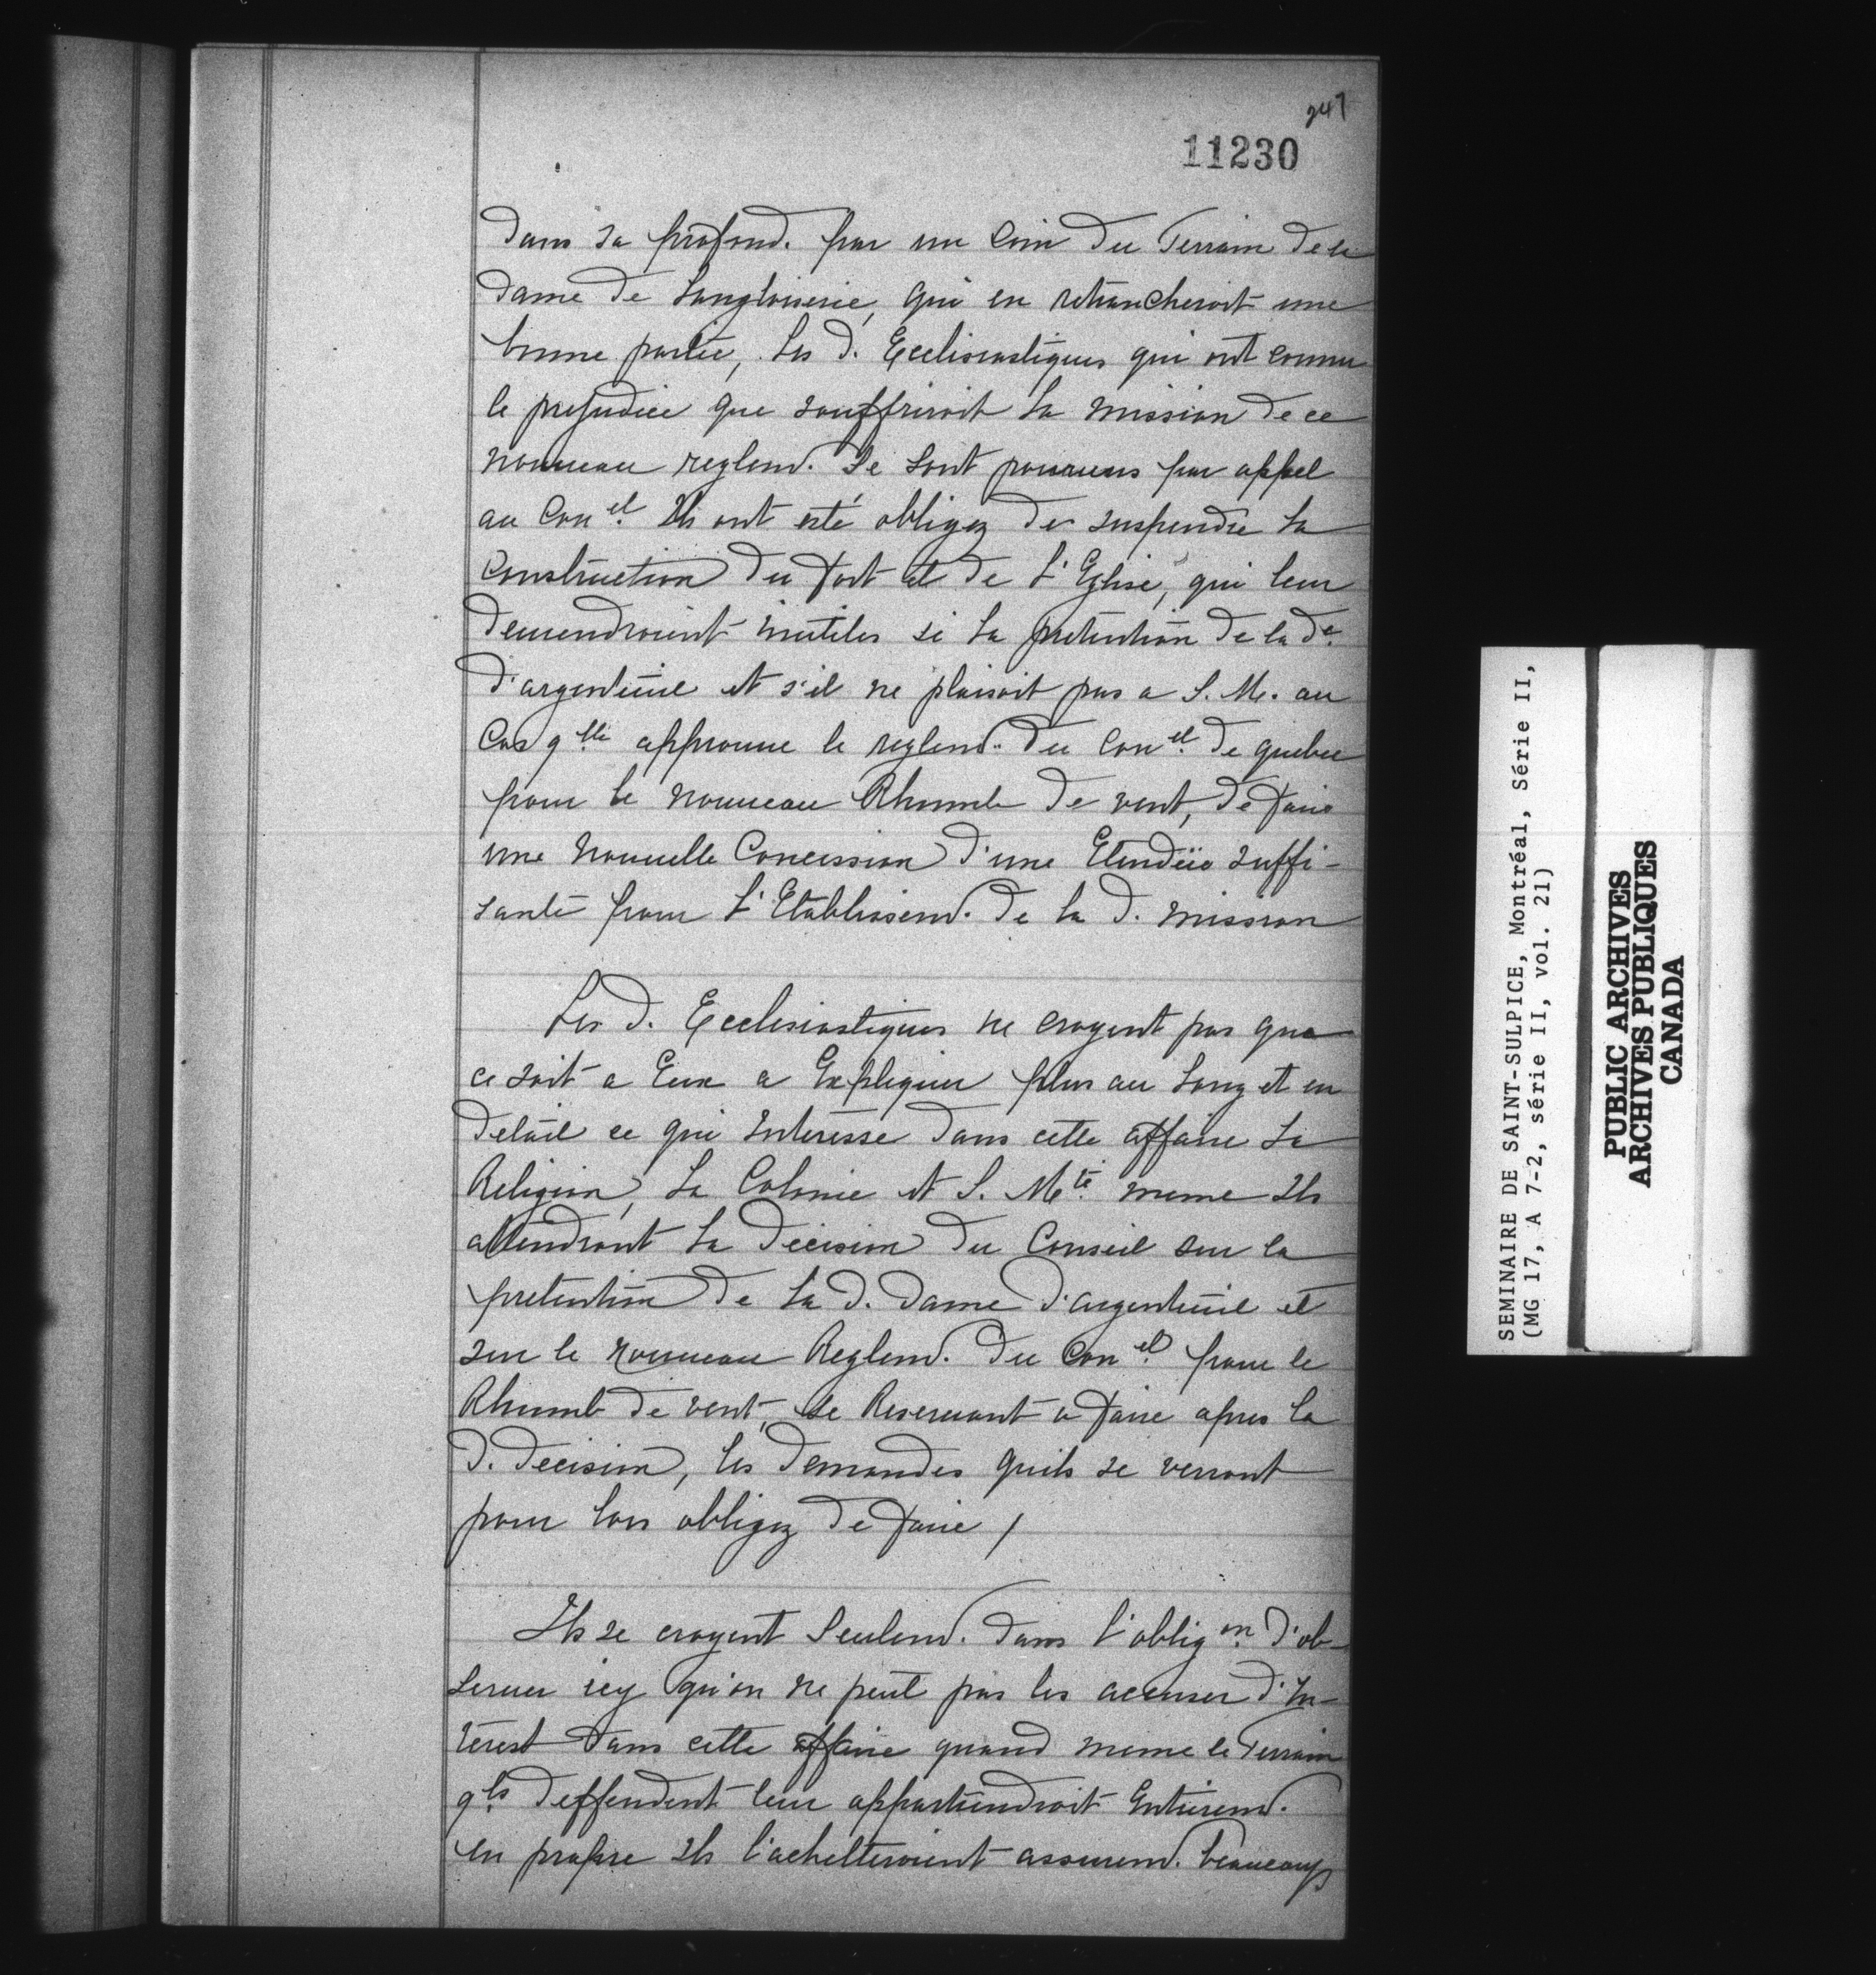 247
11230
dans sa profond. par un coin du Terrain de la
dame de Langloiserie, qui en retrancheroit une
bonne partie, Les d. Ecclesiastiques qui ont connu
le prejudice que souffriroit La mission de ce
nouveau reglem.t Se sont pourveus par appel
au Con.el Ils ont esté obligez de suspendre La
Construction du fort et de L'Eglise, qui leur
deviendroient inutiles si La pretention de la de.
d'argenteüil et s'il ne plaisoit pas a S. M. au
Cas q.lle approuve le reglem.t du Con.el de quebec
pour le nouveau Rhumb de vent, de faire
une Nouvelle Concession d'une Etendüe suffi-
sante pour L'Etablissem.t de La d. mission
Les d. Ecclesiastiques ne croyent pas que
ce soit a Eux a Expliquer plus au Long et en
detail ce qui Interesse dans cette affaire La
Religion, La Colonie et S. M.té meme Ils
attendront La decision du Conseil sur la
pretention de La d. dame d'argenteüil et
sur le nouveau Reglem.t du Con.el pour le
Rhumb de vent, se Reservant a faire apres La
d. decision, les demandes quils se verront
pour lors obligez de faire /
Ils se croyent Seulem.t dans l'oblig.on d'ob-
server icy qu'on ne peut pas les accuser d'In-
terest dans cette affaire quand meme le Terrain
q.ls deffendent leur appartiendroit Entierem.t
en propre Ils l'achetteroient assurem.t beaucoup
SEMINAIRE DE SAINT-SULPICE, Montréal, Série II,
(MG 17, A 7-2, série II, vol. 21)
PUBLIC ARCHIVES
ARCHIVES PUBLIQUES
CANADA